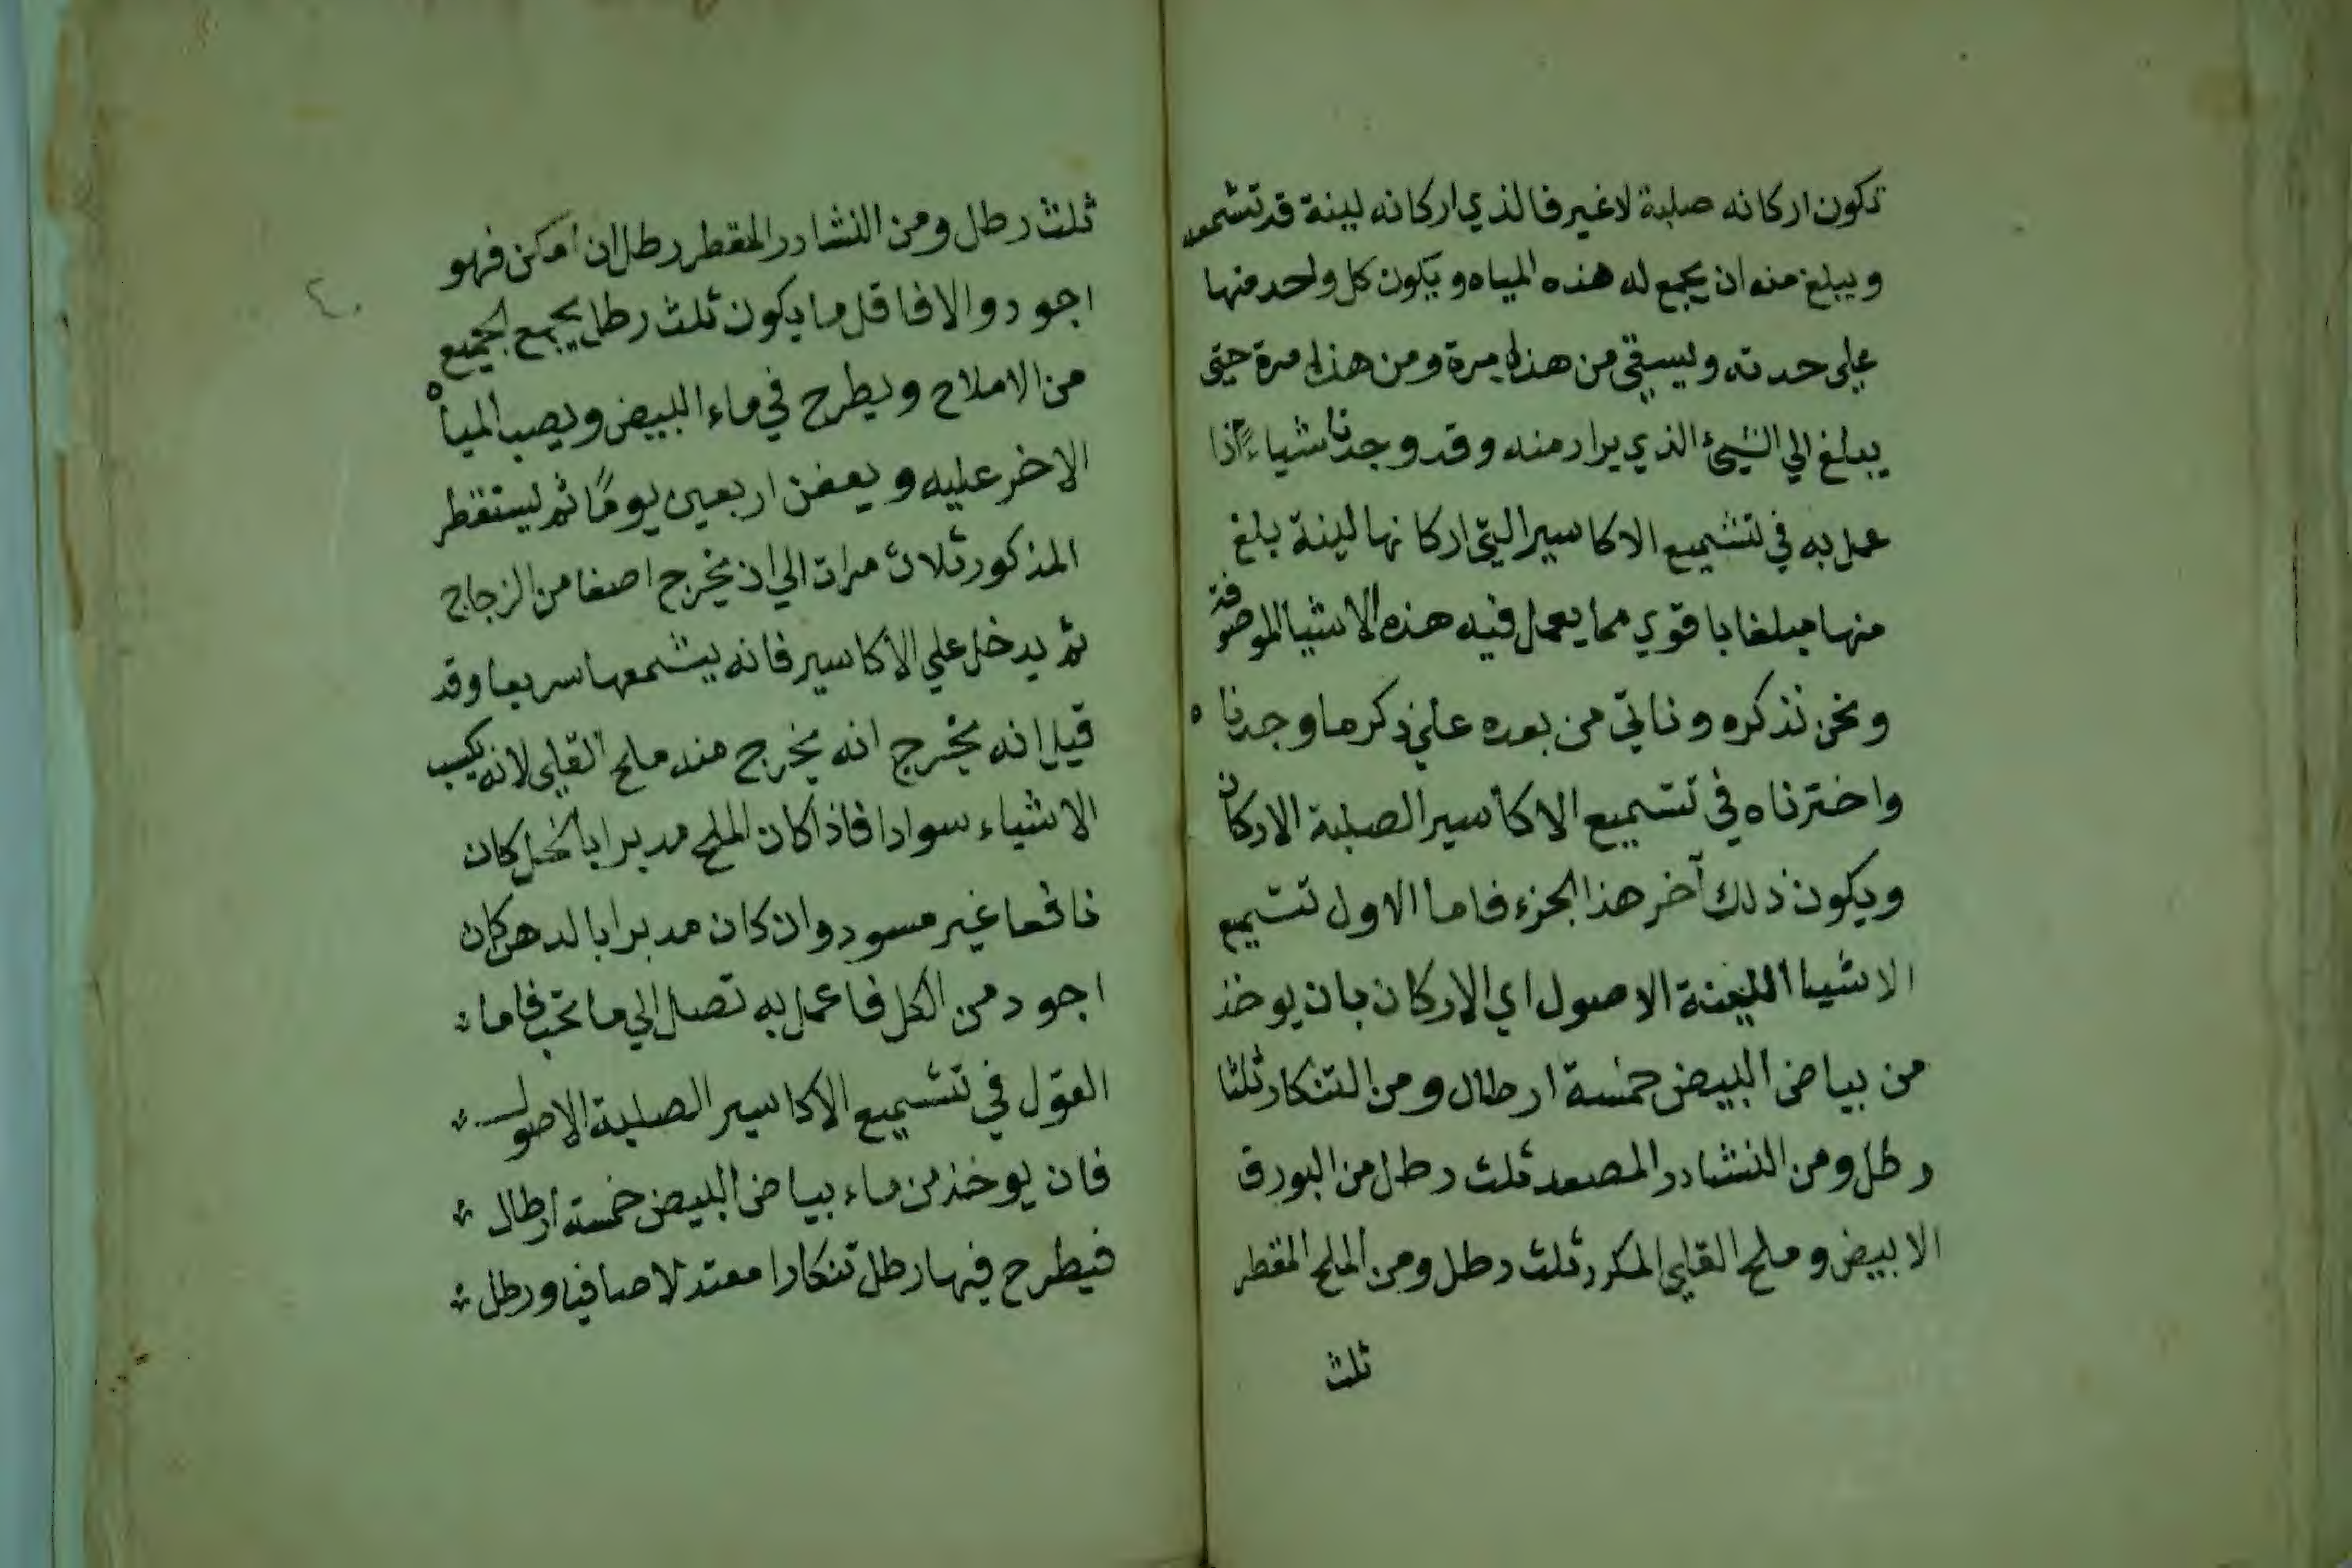 تكون اركانه صلبة لاغير فالذي اركانه لينة قد تشمعه
ويبلغ منه ان يجمع له هذه المياه ويكون كل واحد منها
علي حدته ويسقي من هذا مرة ومن هذا مرة حتي
يبلغ الي الشيئ الذي يراد منه وقد وجدنا شياء اذا
عمل به في تشميع الاكاسير التي اركانها لينة بلغ
منها مبلغا باقوي مما يعمل فيه هذه الاشيا الموصوفة
ونحن نذكره وناتي من بعده علي ذكر ما وجدنا ه
واخترناه في تشميع الاكاسير الصلبة الاركان
ويكون ذلك آخر هذا الجزء فاما الاول تشميع
الاشيا اللينة الاصول اي الاركان بان يوخذ
من بياض البيض خمسة ارطال ومن التنكار ثلثا
رطل ومن النشادر المصعد ثلث رطل من البورق
الابيض وملح القلي المكرر ثلث رطل ومن الملح المقطر
ثلث
٤٠
ثلث رطل ومن النشادر المقطر رطل ان امكن فهو
اجود والا فاقل ما يكون ثلث رطل يجمع الجميع
من الاملاح ويطرح في ماء البيض ويصب المياه
الاخر عليه ويعفن اربعين يومًا ثم يستقطر
المذكور ثلاث مرات الي ان يخرج اصفا من الزجاج
ثم يدخل علي الاكاسير فانه يشمعها سريعا وقد
قيل انه يخرج انه يخرج منه ملح القلي لانه يكسب
الاشياء سوادا فاذا كان الملح مدبرا بالخل كان
نافعا غير مسود وان كان مدبرا بالدهن كان
اجود من الكل فاعمل به تصل الي ما تحب فاما
القول في تشميع الاكاسير الصلبة الاصول
فان يوخذ من ماء بياض البيض خمسة ارطال
فيطرح فيها رطل تنكارا معتدلا صافيا ورطل